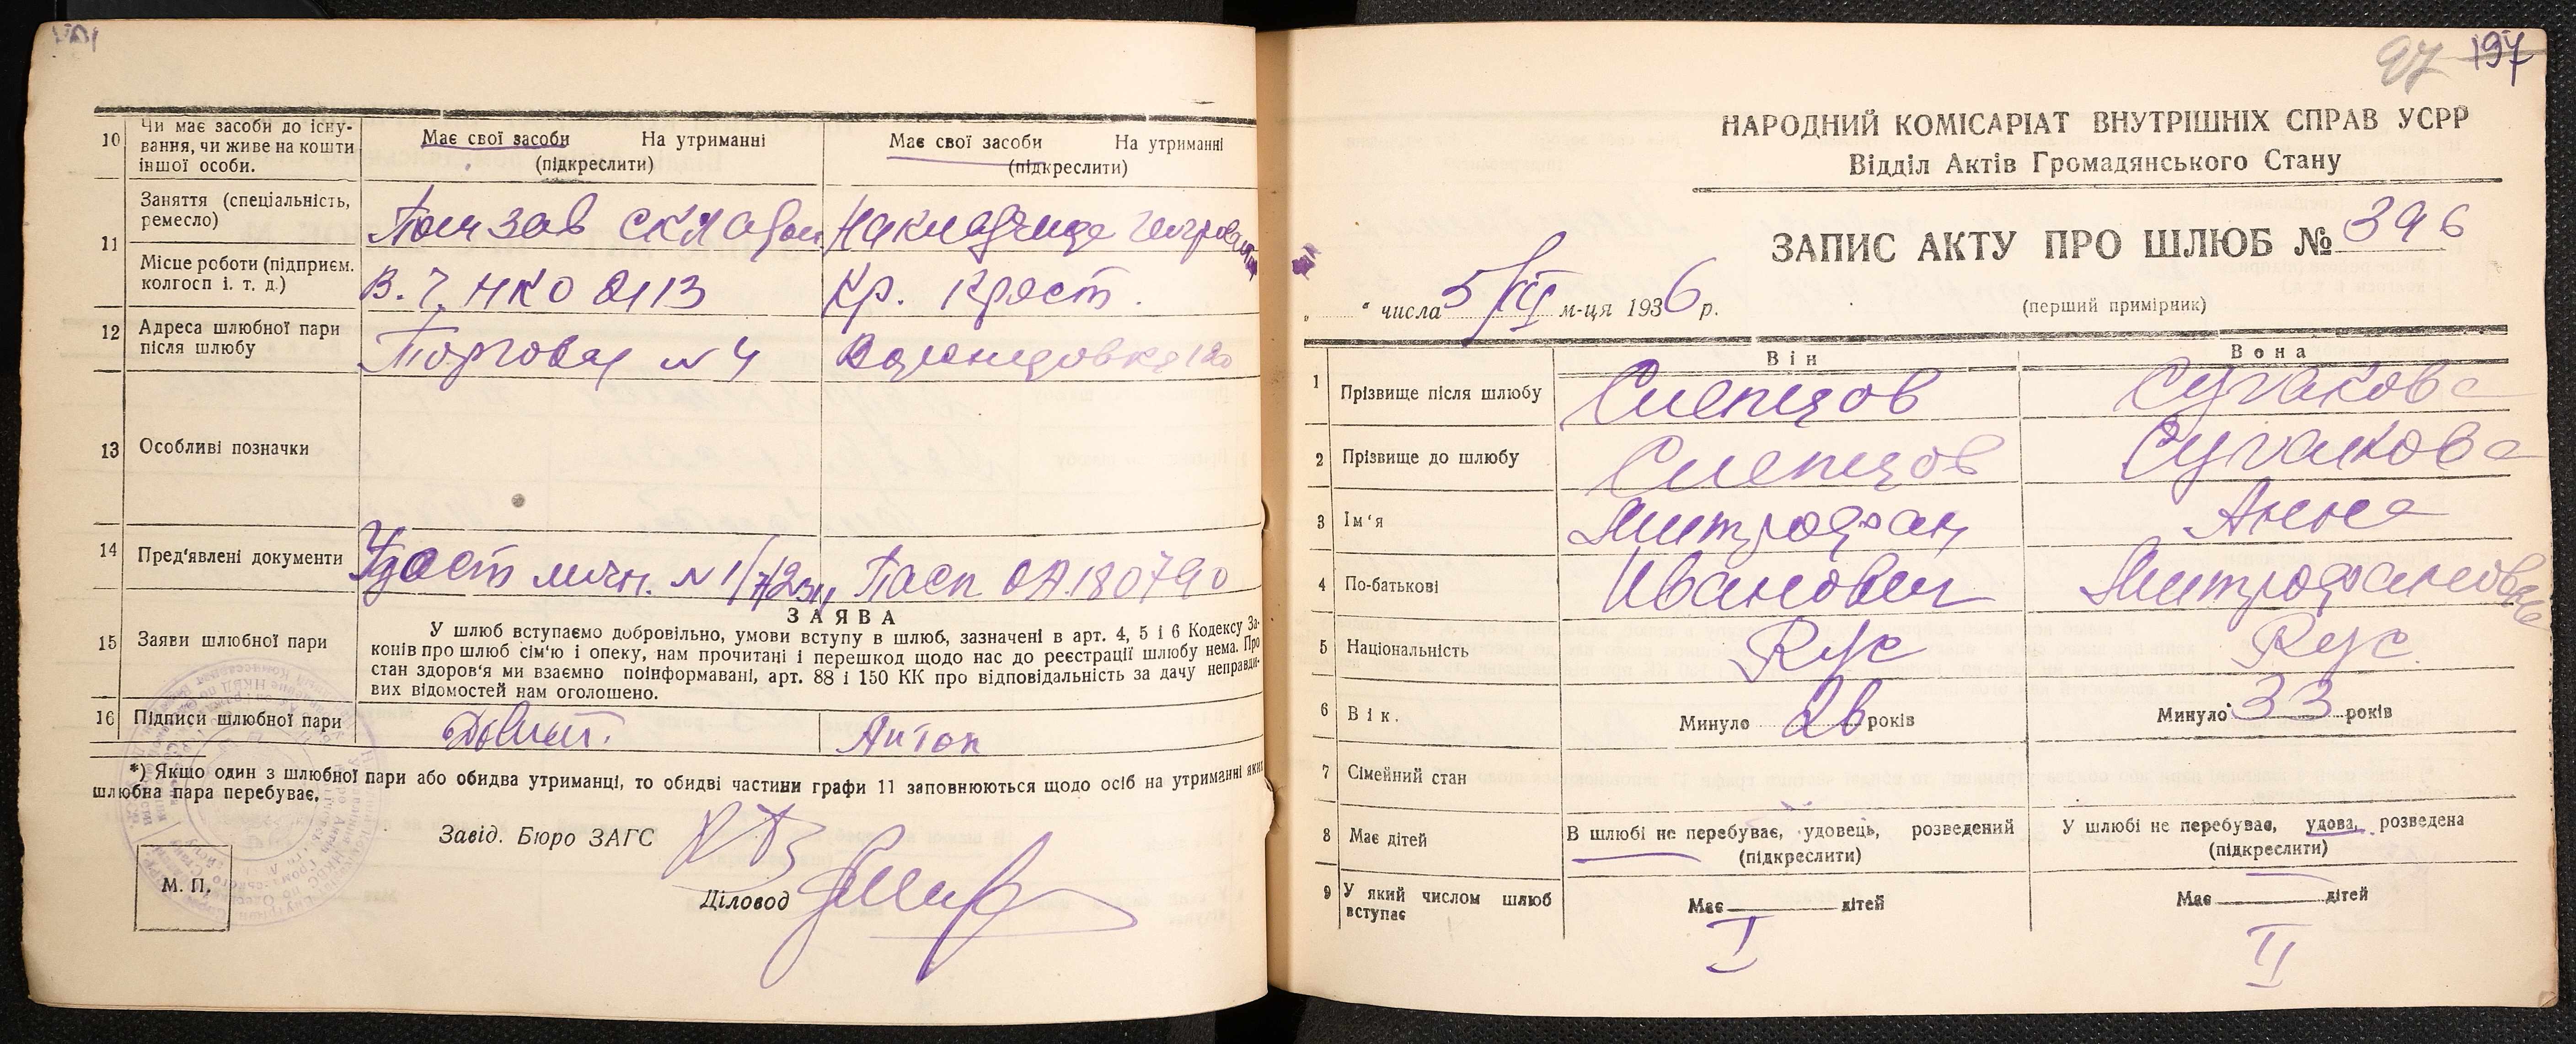 10 Чи має засоби до існу-
вання, чи живе на кошти
іншої особи.
Має свої засоби На утриманні
(підкреслити)
Має свої засоби На утриманні
(підкреслити)
11 Заняття (спеціальність,
ремесло)
Пом зав складом
Місце роботи (підприєм.
колгосп і. т. д.)
В. Ч. НКО 2113
Кр.
12 Адреса шлюбної пари
після шлюбу
Торговая № 4
13 Особливі позначки
14 Пред'явлені документи
Удост личн. Пасп ОА.180790
15 Заяви шлюбної пари
ЗАЯВА
У шлюб вступаємо добровільно, умови вступу в шлюб, зазначені в арт. 4, 5 і 6 Кодексу За-
конів про шлюб сім'ю і опеку, нам прочитані і перешкод щодо нас до реєстрації шлюбу нема. Про
стан здоров'я ми взаємно поінформавані, арт. 88 і 150 КК про відповідальність за дачу неправди-
вих відомостей нам оголошено.
16 Підписи шлюбної пари
*) Якщо один з шлюбної пари або обидва утриманці, то обидві частини графи 11 заповнюються щодо осіб на утриманні яких
шлюбна пара перебуває.
Завід. Бюро ЗАГС
Діловод
М. П.
97 197
НАРОДНИЙ КОМІСАРІАТ ВНУТРІШНІХ СПРАВ УСРР
Відділ Актів Громадянського Стану
ЗАПИС АКТУ ПРО ШЛЮБ № 396
" " числа 5/XII м-ця 1936 р. (перший примірник)
Він Вона
1 Прізвище після шлюбу Слепцов Сучакова
2 Прізвище до шлюбу Слепцов Сучакова
3 Ім'я Митрофан Анна
4 По-батькові Иванович Митрофановна
5 Національність Рус Рус.
6 Вік. Минуло 26 років Минуло 33 років
7 Сімейний стан
8 Має дітей
В шлюбі не перебуває, удовець, розведений
(підкреслити)
У шлюбі не перебуває, удова, розведена
(підкреслити)
9 У який числом шлюб
вступає
Має дітей
I
Має дітей
II